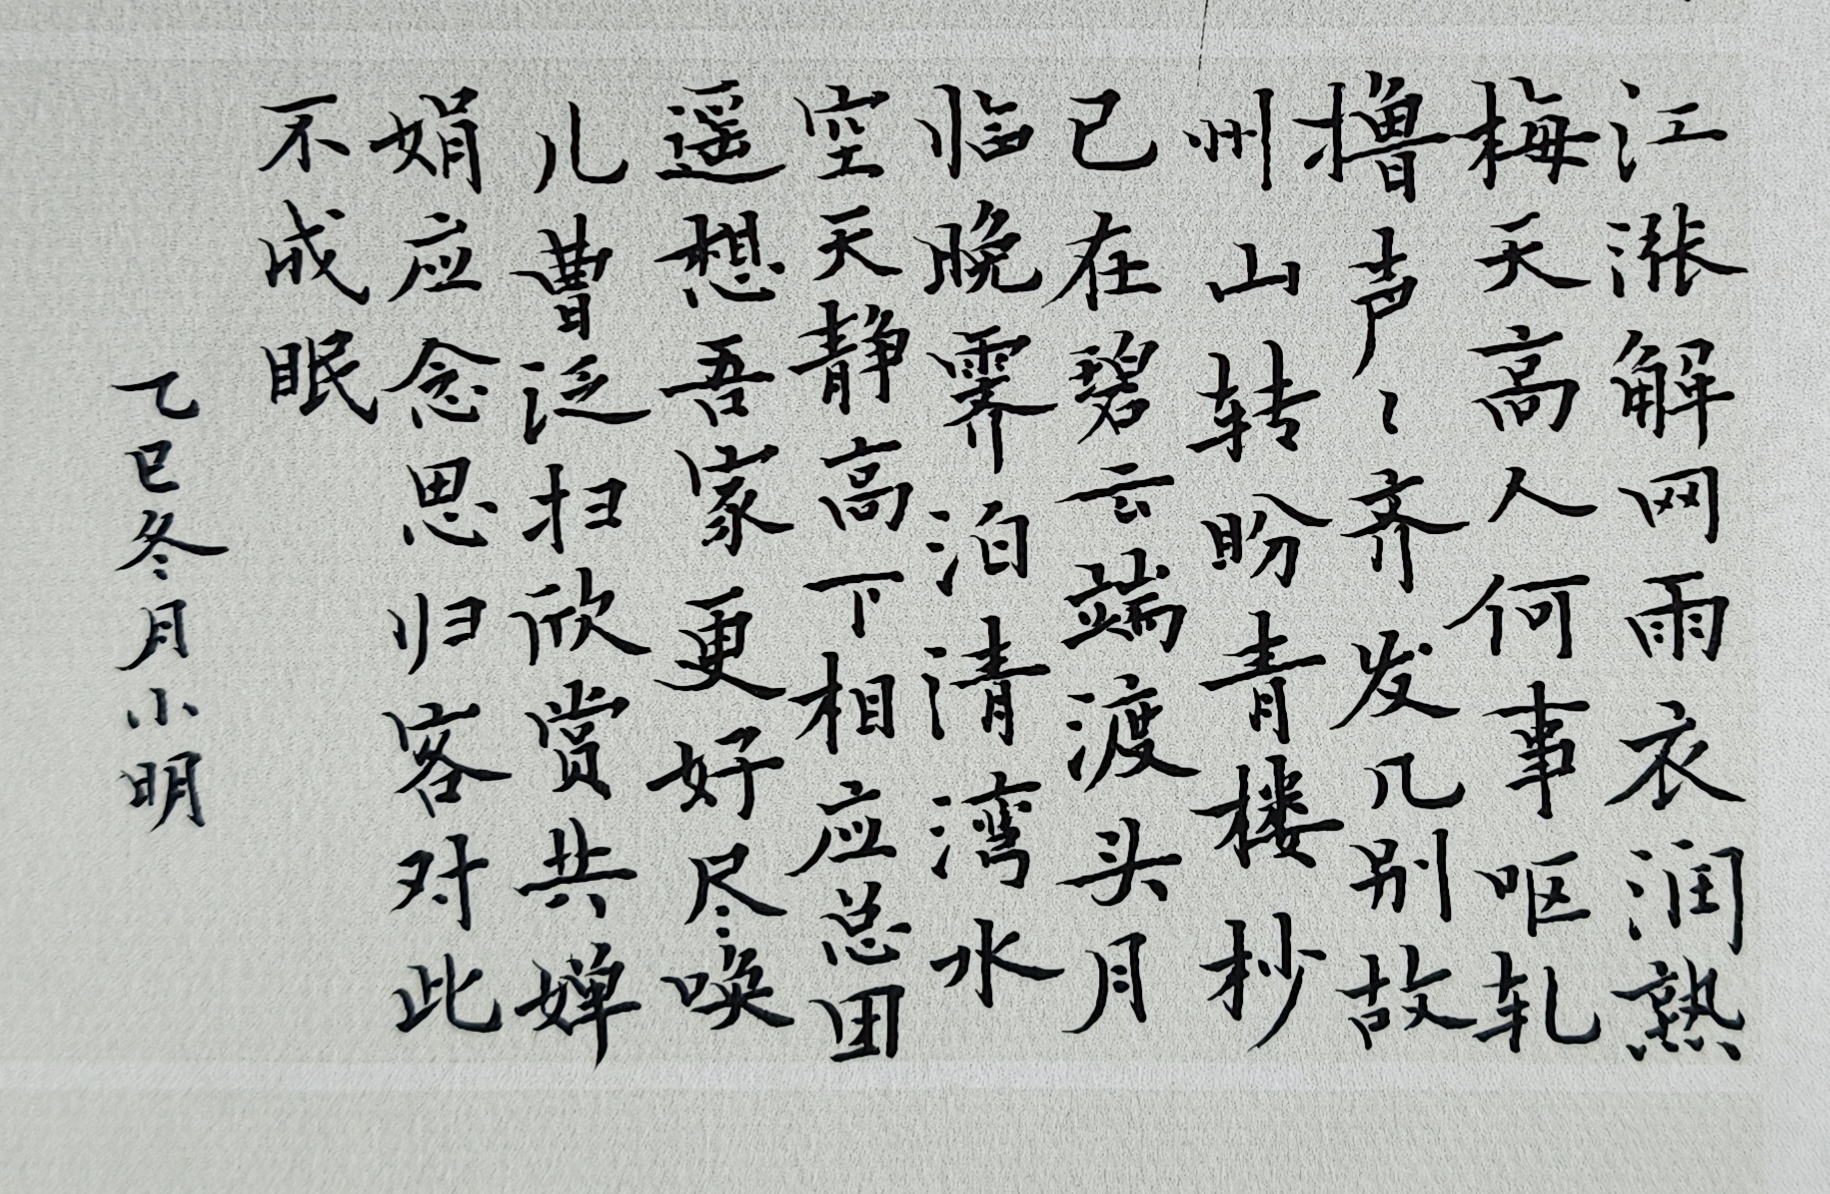 江涨解网雨衣润熟
梅天高人何事呕轧
橹声々齐发几别故
州山转盼青楼杪
已在碧云端渡头月
临晚霁泊清湾水
空天静高下相应总团
遥想吾家更好尽唤
儿曹泛扫欣赏共婵
娟应念思归客对此
不成眠
乙巳冬月小明